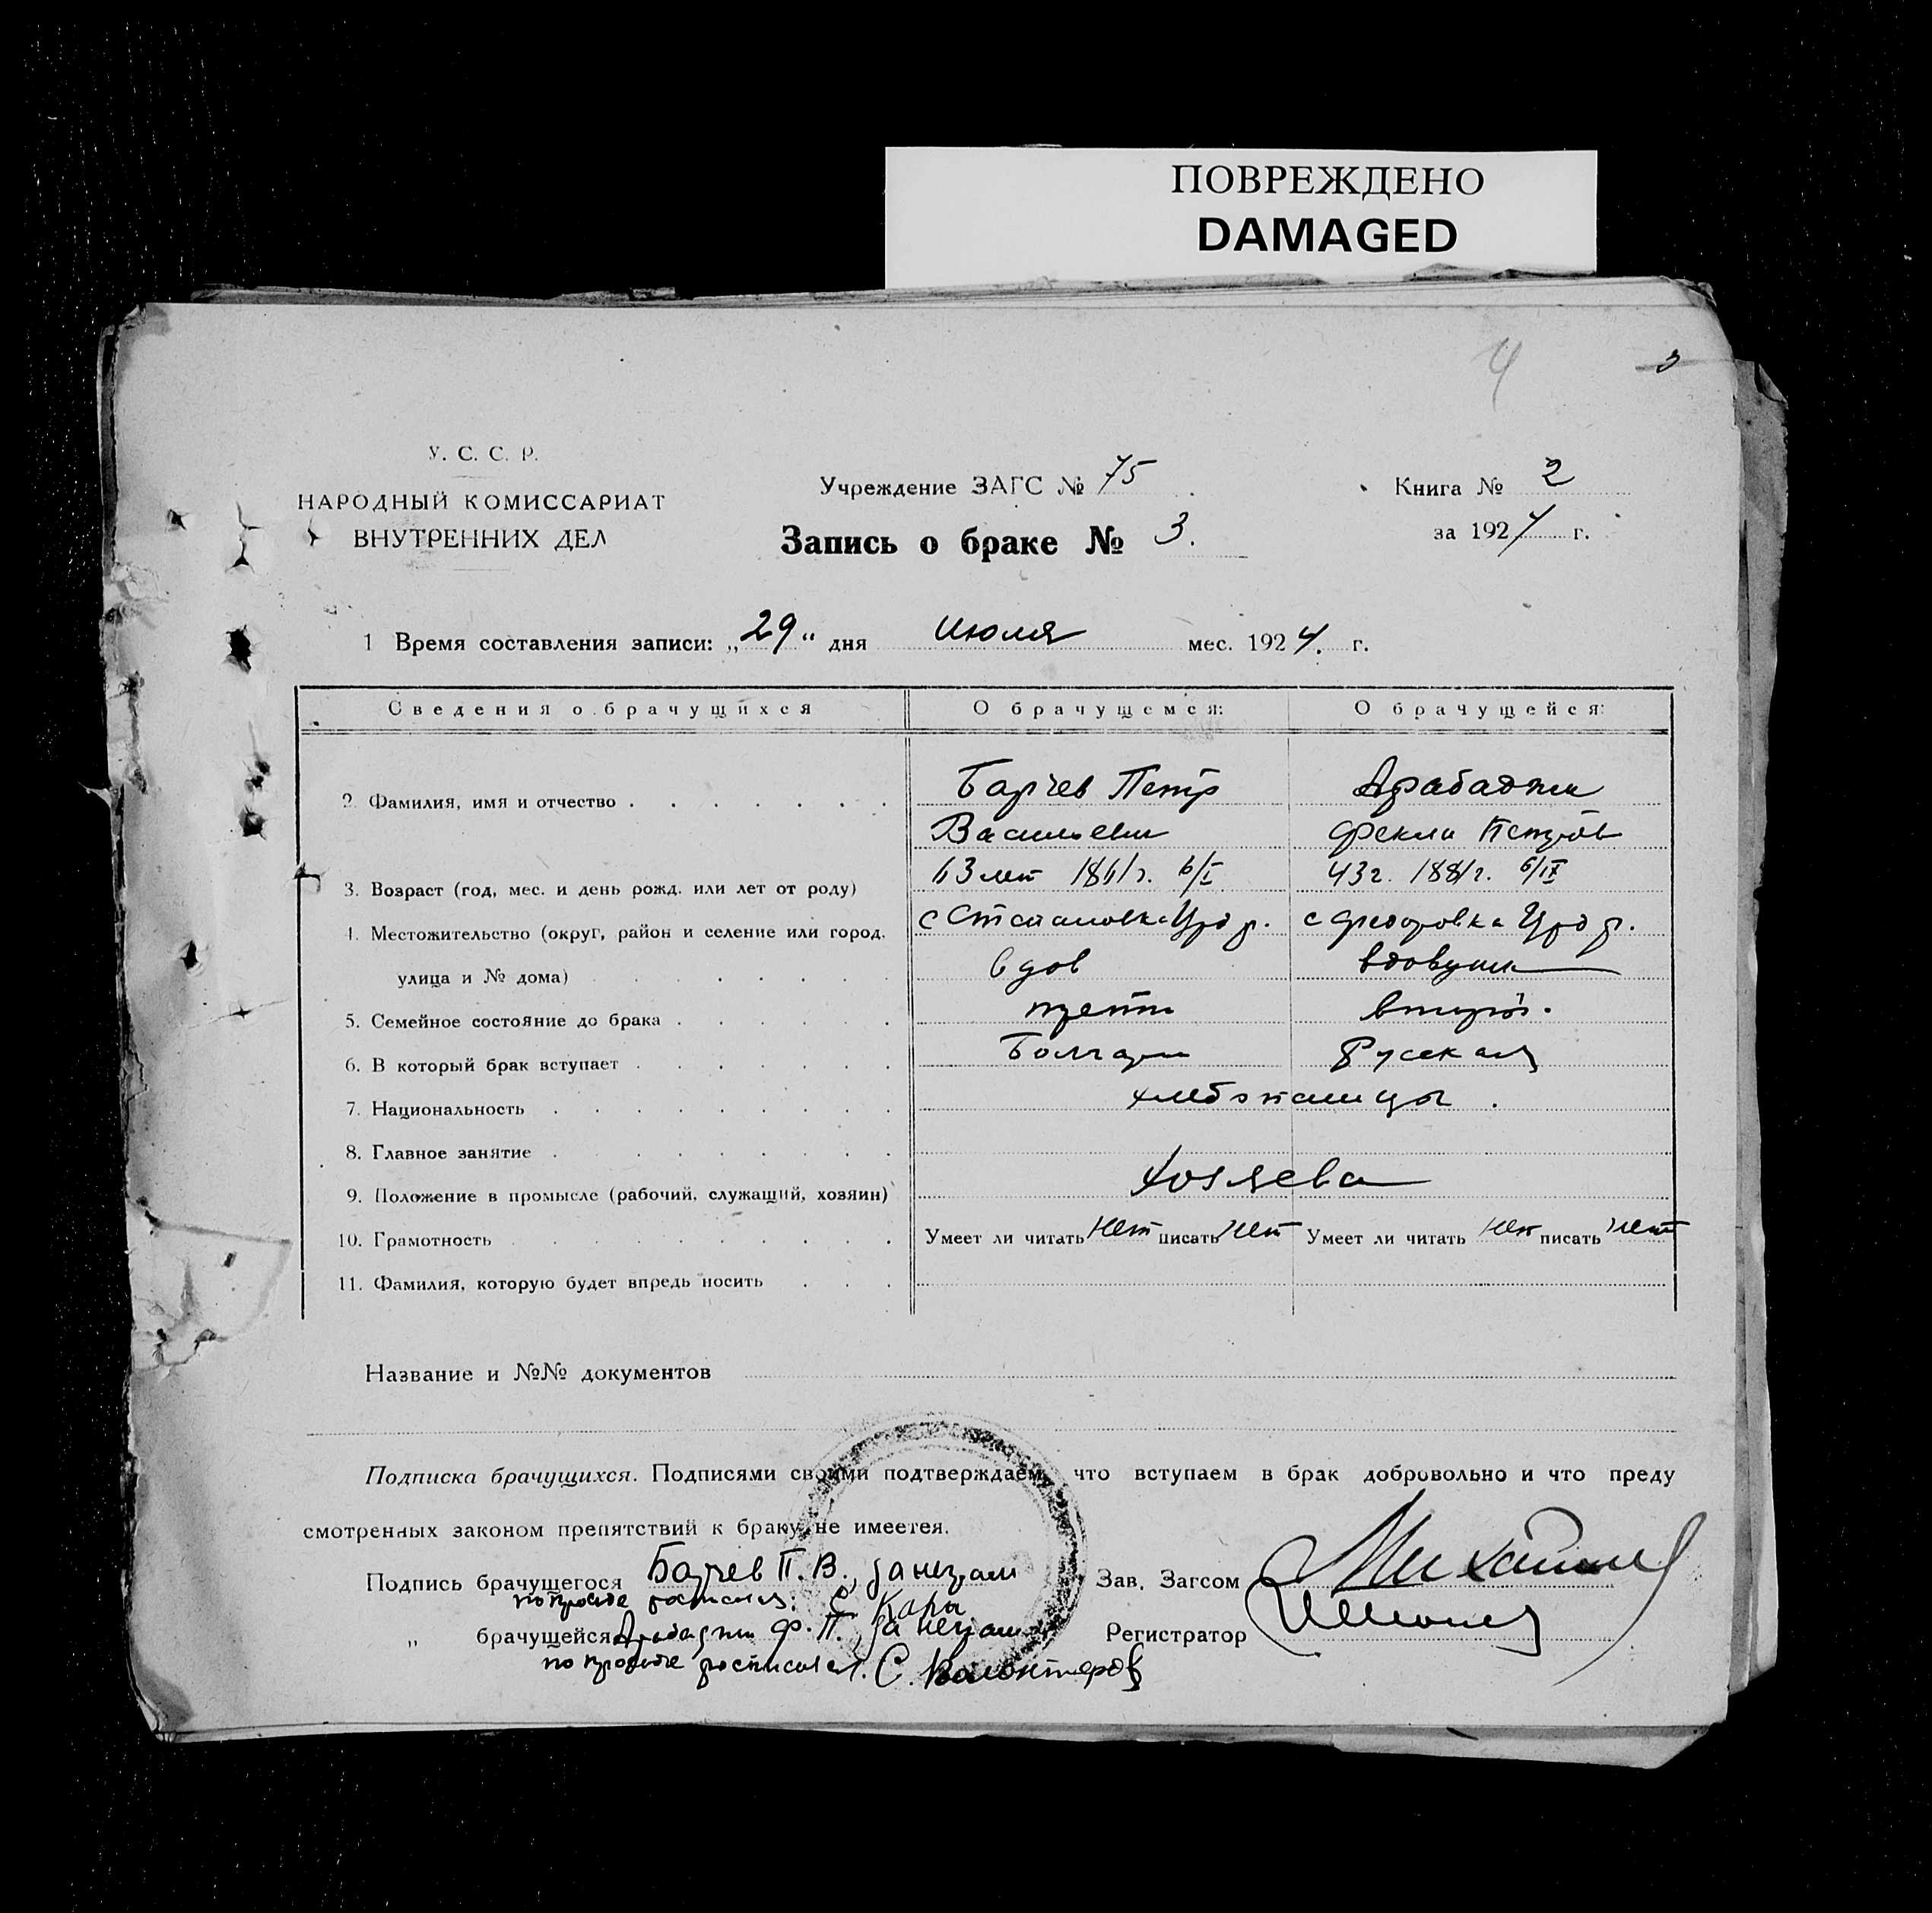 ПОВРЕЖДЕНО
DAMAGED
4
3
У. С. С. Р.
НАРОДНЫЙ КОМИССАРИАТ
ВНУТРЕННИХ ДЕЛ
Учреждение ЗАГС № 75
Запись о браке № 3.
Книга № 2
за 1924 г.
1 Время составления записи: „29" дня июля мес. 1924. г.
Сведения о брачущихся О брачущемся: О брачущейся:
2. Фамилия, имя и отчество Петр Арабаджи
Васильевич Фекла Петров
3. Возраст (год, мес. и день рожд. или лет от роду) 63 лет 1861 г. 6/I 43 г. 1881 г. 6/IX
4. Местожительство (округ, район и селение или город, с Степановка с Федоровка
улица и № дома) вдов вдовушка
5. Семейное состояние до брака третий второй.
6. В который брак вступает Болгарин Русская
7. Национальность хлебопашцы.
8. Главное занятие
9. Положение в промысле (рабочий, служащий, хозяин) хозяева
10. Грамотность Умеет ли читать нет писать нет Умеет ли читать нет писать нет
11. Фамилия, которую будет впредь носить
Название и №№ документов
Подписка брачущихся. Подписями своими подтверждаем, что вступаем в брак добровольно и что преду
смотренных законом препятствий к браку не имеется.
Подпись брачущегося П. В., за неграм Зав. Загсом
по просьбе
„ брачущейся Арабаджи Ф. П. за неграм Регистратор
по просьбе расписался. С.